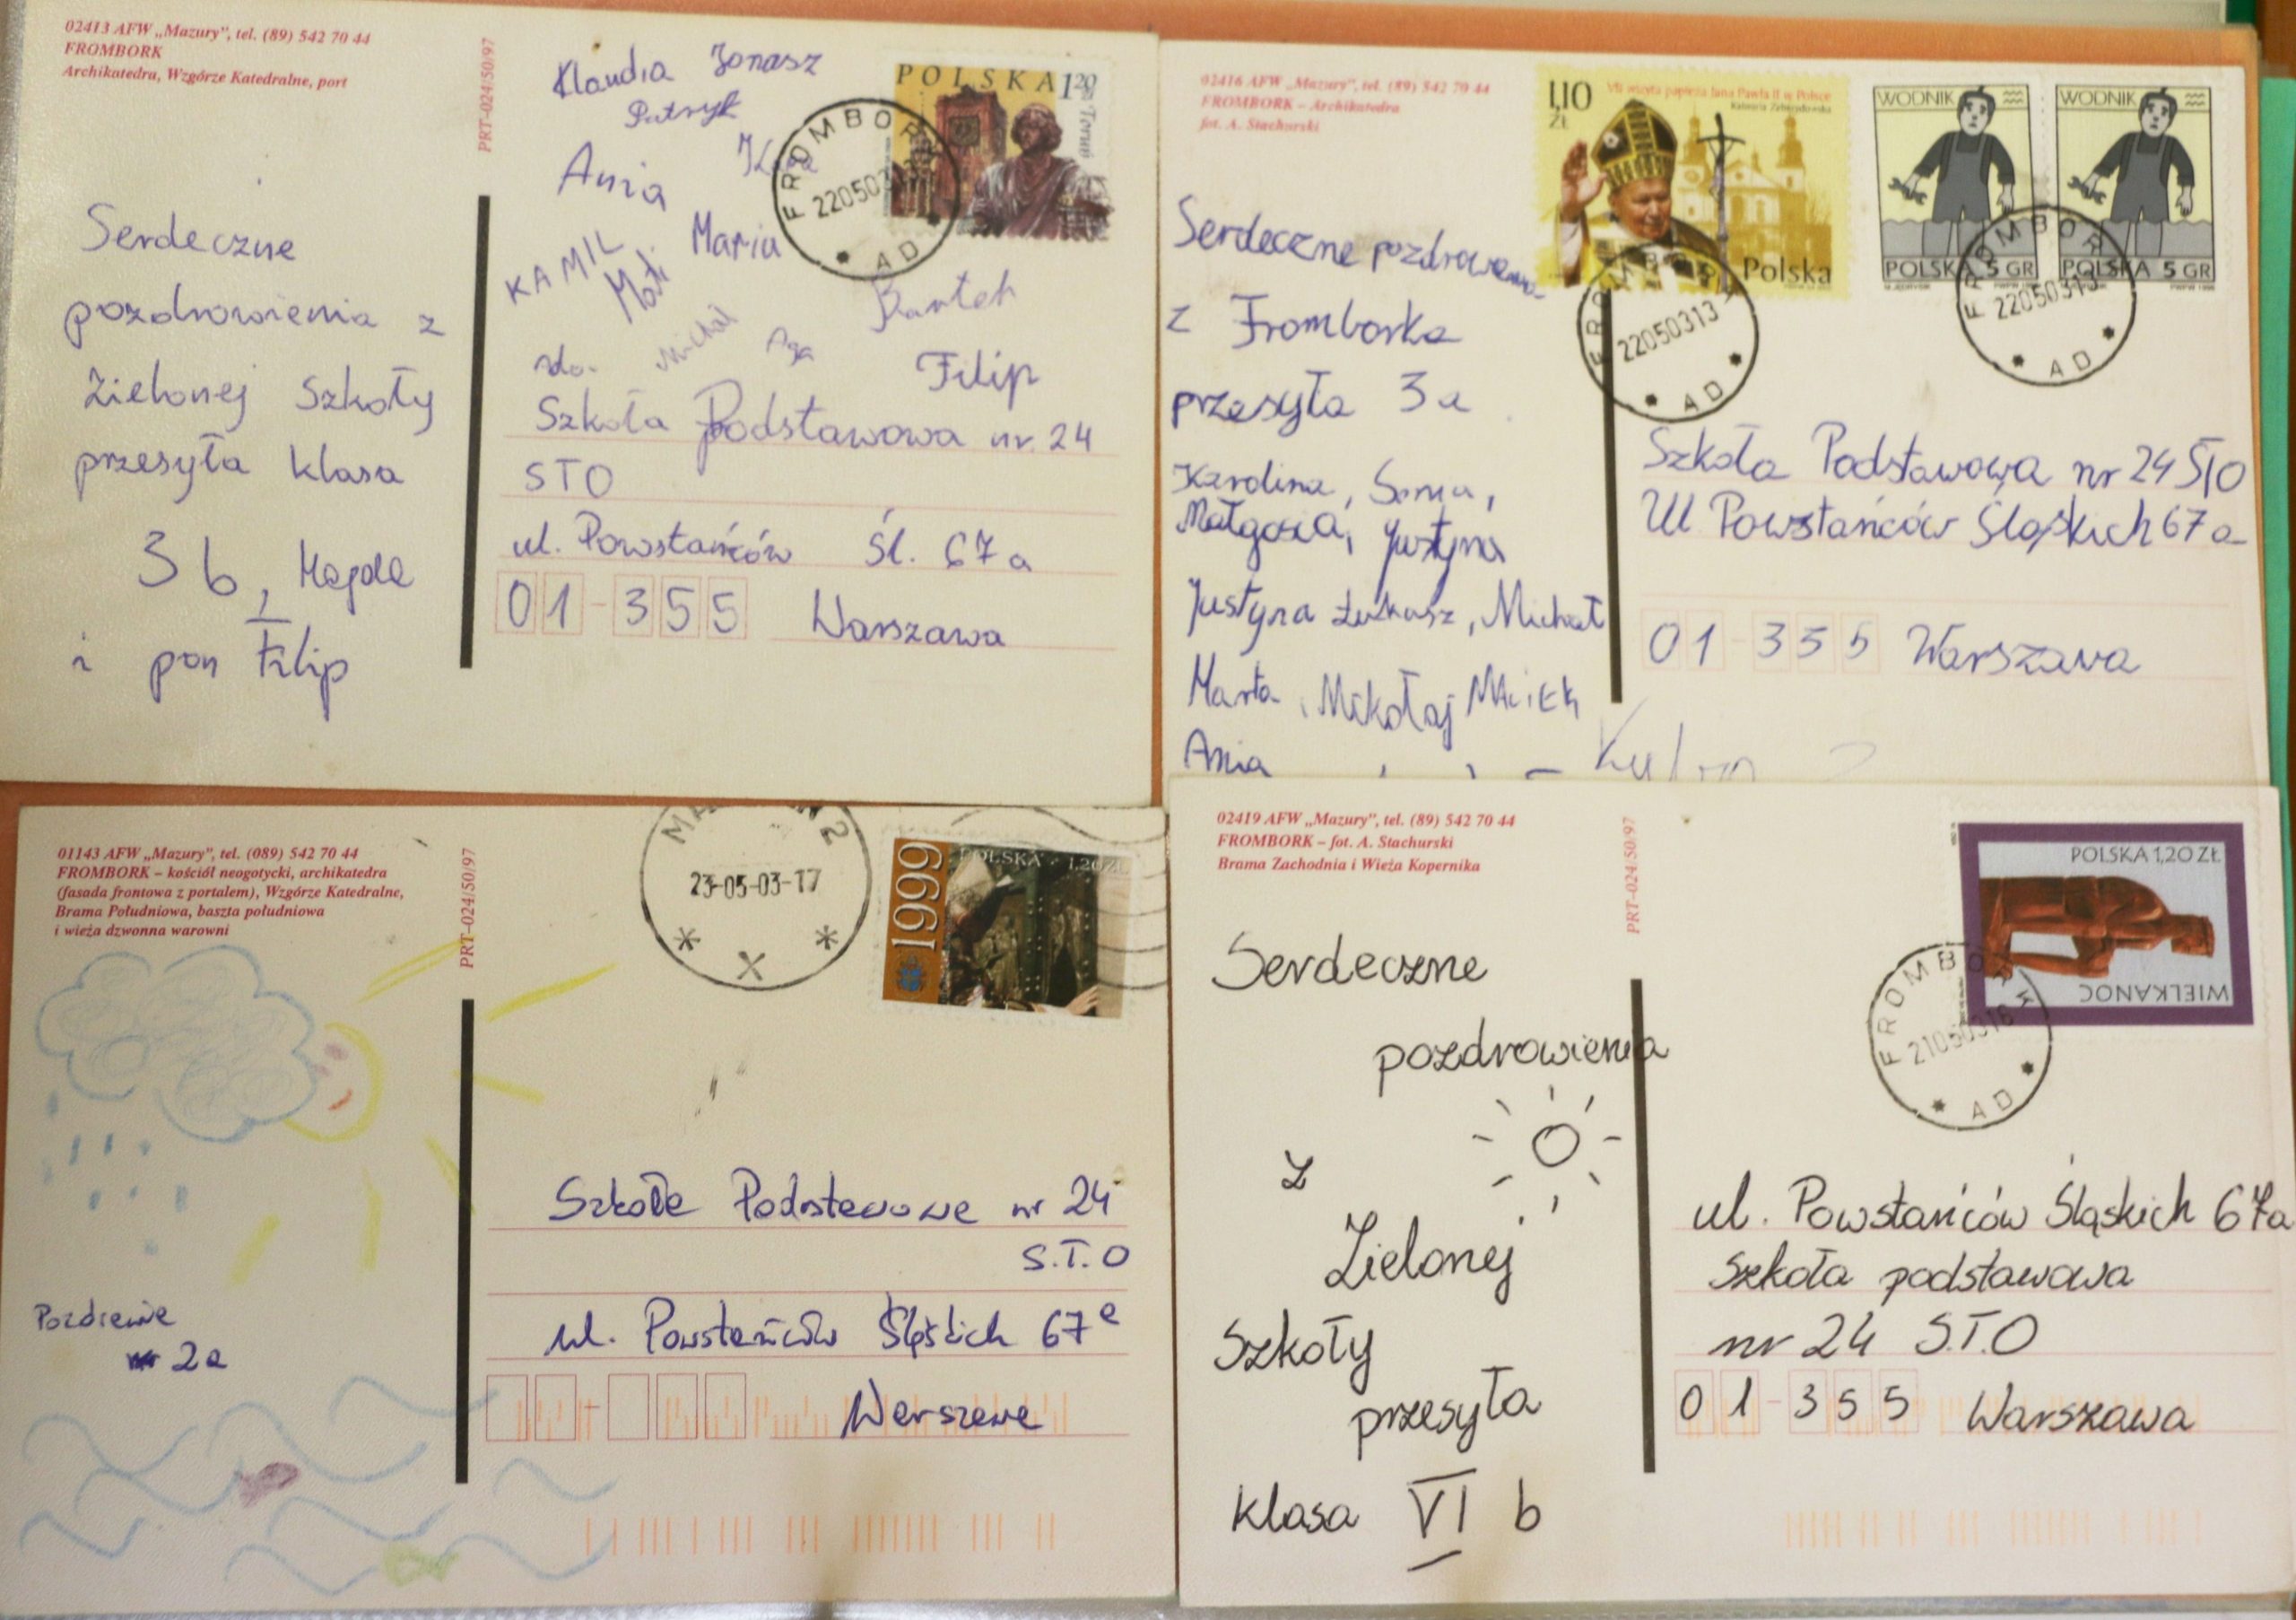 02413 AFW „Mazury”, tel. (89) 542 70 44
FROMBORK
Archikatedra, Wzgórze Katedralne, port
PRT-024/50/97
Serdeczne
pozdrowienia z
Zielonej Szkoły
przesyła klasa
3 b, Magda
i pan Filip
Klaudia Jonasz
Patryk
Ania
Maria
KAMIL
Mati
Michał Aga
Bartek
Filip
POLSKA 120
Toruń
FROMBORK
220503
AD
do.
Szkoła Podstawowa nr. 24
STO
ul. Powstańców Śl. 67a
01-355 Warszawa
02416 AFW „Mazury”, tel. (89) 542 70 44
FROMBORK – Archikatedra
fot. A. Stachurski
Serdeczne pozdrowienia
z Fromborka
przesyła 3a
Karolina, Sonia,
Małgosia, Justyna
Justyna Łukasz, Michał
Marta, Mikołaj Maciek
Ania
1,10 ZŁ
VII wizyta papieża Jana Pawła II w Polsce
Kalwaria Zebrzydowska
Polska
WODNIK
POLSKA 5 GR
WODNIK
POLSKA 5 GR
FROMBORK
22050313
AD
FROMBORK
22050313
AD
Szkoła Podstawowa nr 24 STO
Ul Powstańców Śląskich 67a
01-355 Warszawa
01143 AFW „Mazury”, tel. (089) 542 70 44
FROMBORK – kościół neogotycki, archikatedra
(fasada frontowa z portalem), Wzgórze Katedralne,
Brama Południowa, baszta południowa
i wieża dzwonna warowni
PRT-024/50/97
2a
23-05-03-17
1999
POLSKA · 1.20 ZŁ
Szkoła Podstawowa nr 24
S.T.O
ul. Powstańców Śląskich 67a
Warszawa
02419 AFW „Mazury”, tel. (89) 542 70 44
FROMBORK – fot. A. Stachurski
Brama Zachodnia i Wieża Kopernika
PRT-024/50/97
Serdeczne
pozdrowienia
z
Zielonej
Szkoły
przesyła
klasa VI b
POLSKA 1,20 ZŁ
WIELKANOC
FROMBORK
21050316
AD
ul. Powstańców Śląskich 67a
Szkoła podstawowa
nr 24 S.T.O
01-355 Warszawa